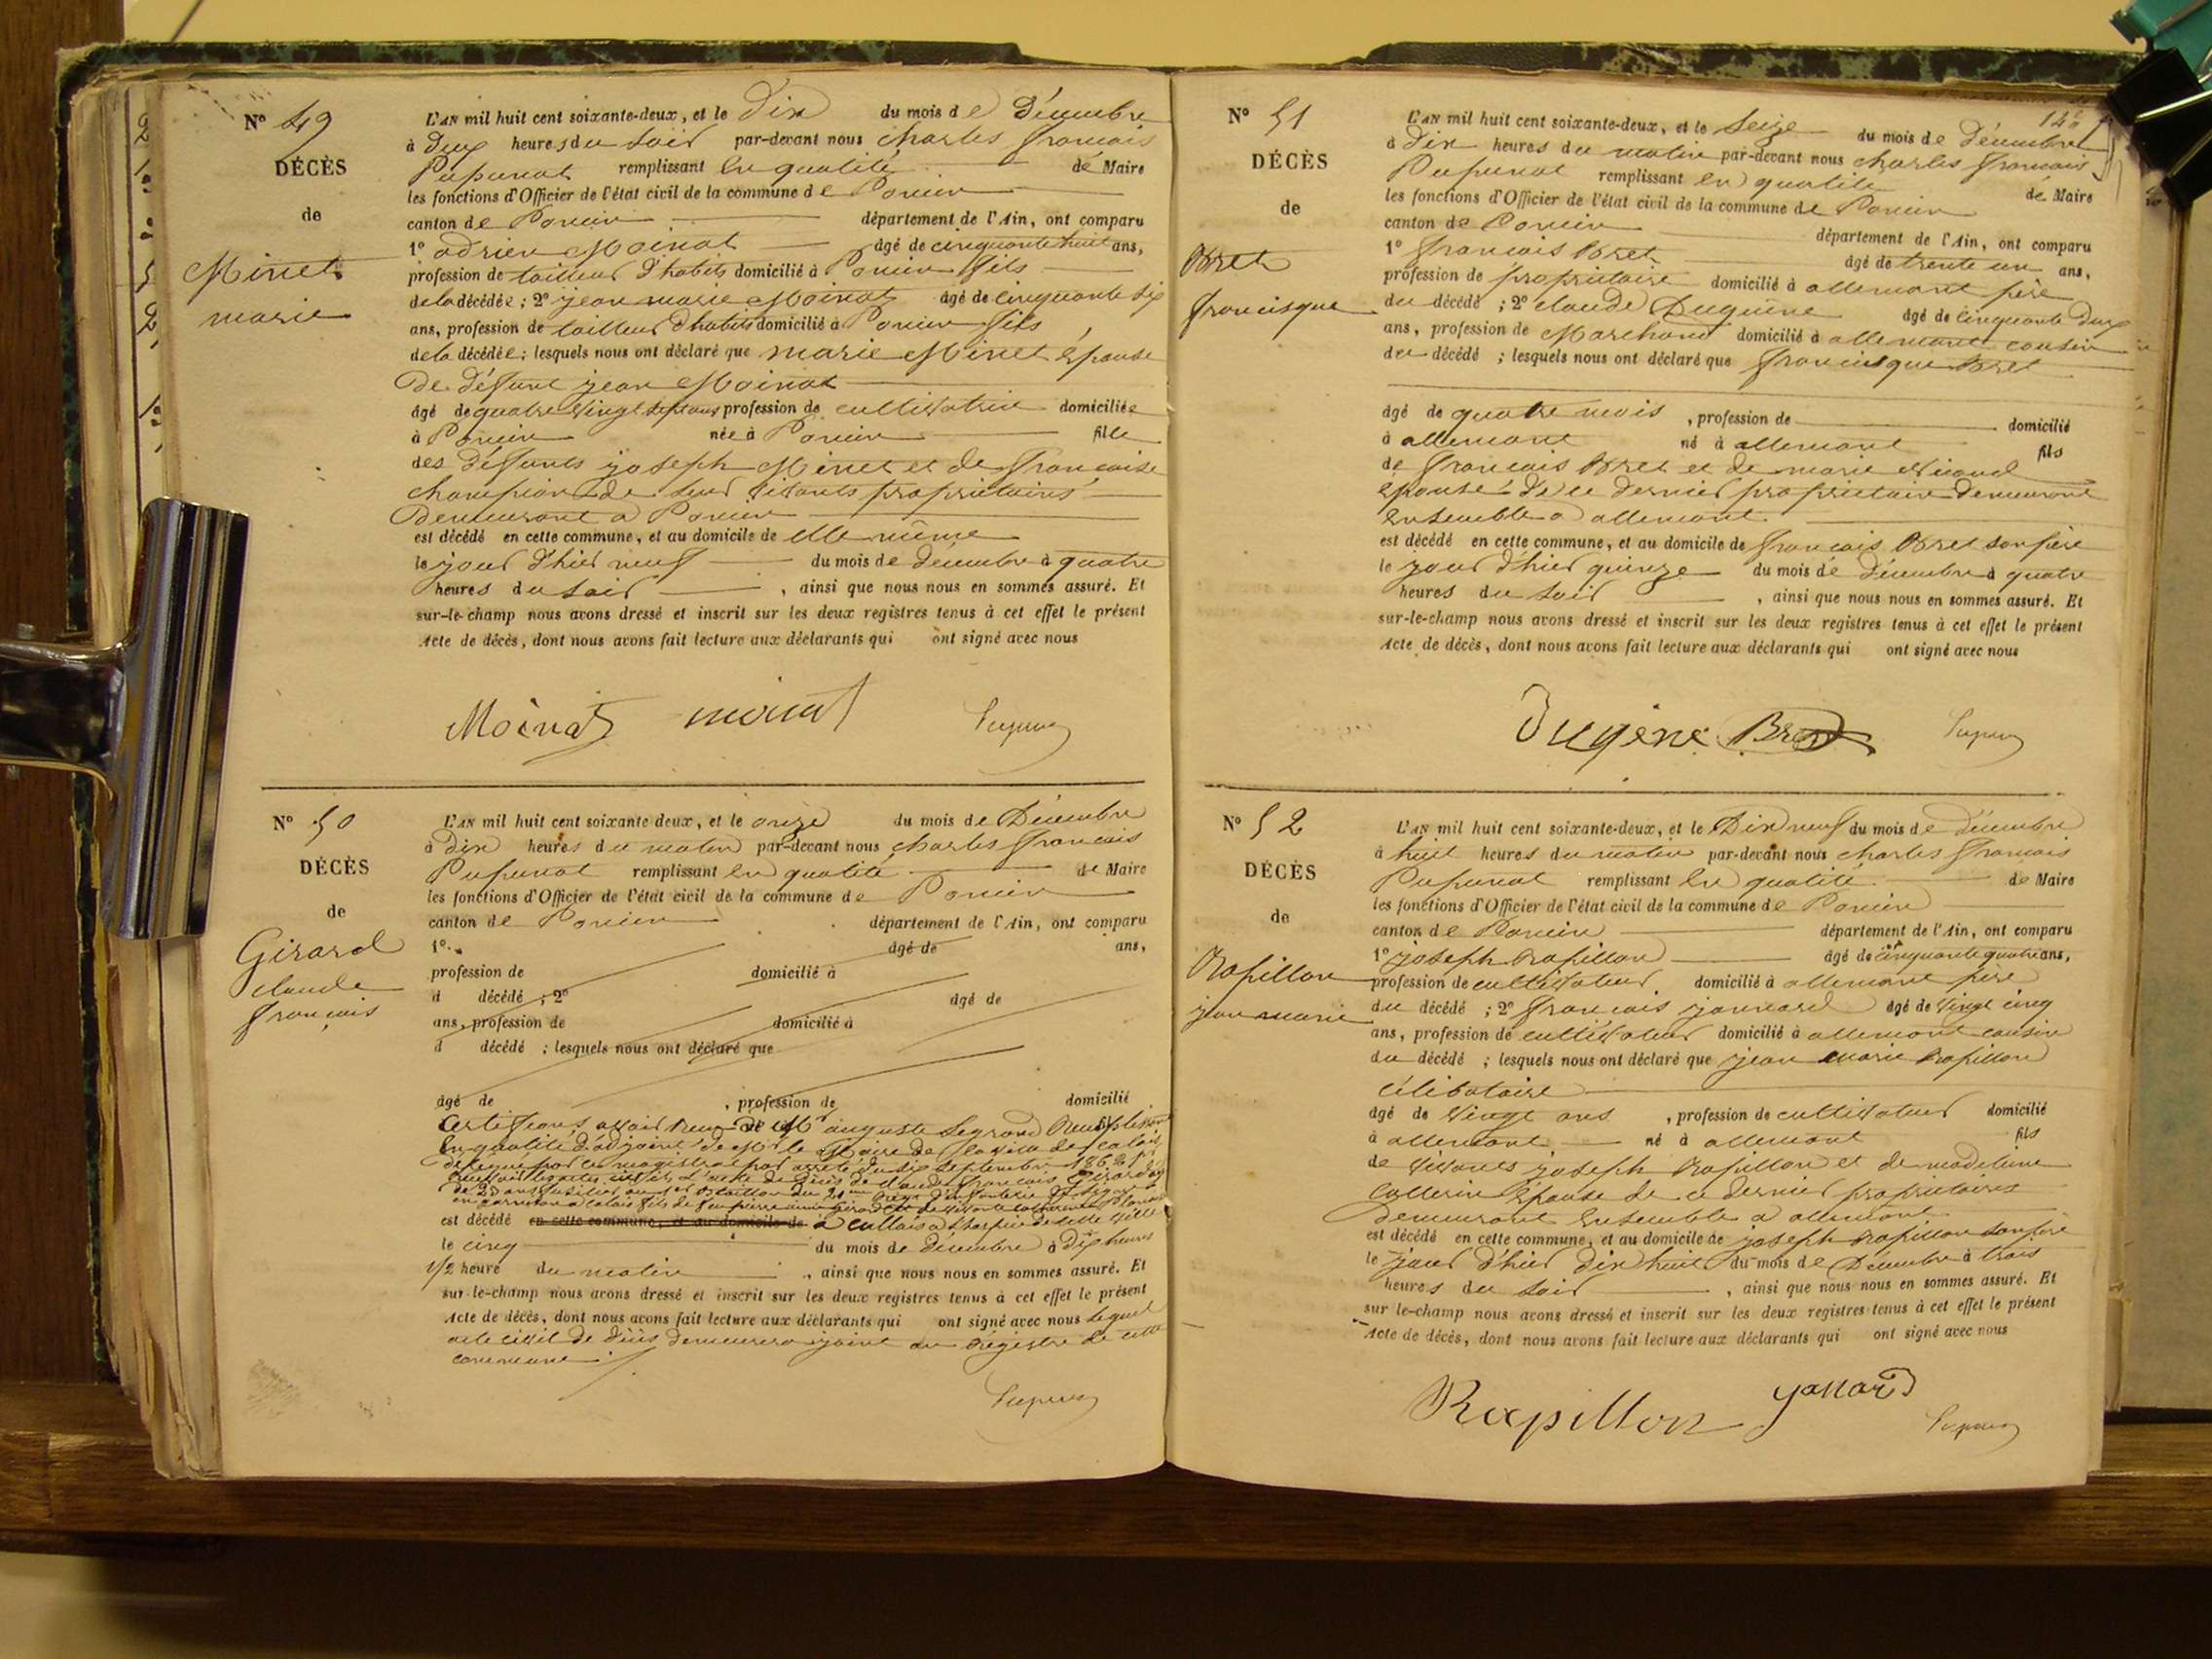 N° 49
DÉCÈS
de
Minet
marie
L'AN mil huit cent soixante-deux, et le Dix du mois de Décembre
à Deux heures du Soir par-devant nous Charles François
Pupunat remplissant en qualité de Maire
les fonctions d'Officier de l'état civil de la commune de Poncin
canton de Poncin département de l'Ain, ont comparu
1° adrien Moinat âgé de cinquante huit ans,
profession de tailleur d'habits domicilié à Poncin fils
de la décédée ; 2° jean marie Moinat âgé de cinquante six
ans, profession de tailleur d'habits domicilié à Poncin fils
de la décédée ; lesquels nous ont déclaré que marie Minet épouse
De défunt jean Moinat
âgé de quatre vingt sept ans profession de cultivatrice domiciliée
à Poncin née à Poncin fille
des défunts joseph Minet et de françoise
champion de leur vivants propriétaires
Demeurant a Poncin
est décédé en cette commune, et au domicile de elle même
le jour d'hier neuf du mois de Décembre à quatre
heures du soir , ainsi que nous nous en sommes assuré. Et
sur-le-champ nous avons dressé et inscrit sur les deux registres tenus à cet effet le présent
Acte de décès, dont nous avons fait lecture aux déclarants qui ont signé avec nous
Moinat moinat
N° 50
DÉCÈS
de
Girard
claude
françois
L'AN mil huit cent soixante-deux, et le onze du mois de Décembre
à Dix heures du matin par-devant nous Charles François
Pupunat remplissant en qualité de Maire
les fonctions d'Officier de l'état civil de la commune de Poncin
canton de Poncin département de l'Ain, ont comparu
1° âgé de ans,
profession de domicilié à
d décédé ; 2° âgé de
ans, profession de domicilié à
d décédé ; lesquels nous ont déclaré que
âgé de , profession de domicilié
Certifions avoir reçu de M auguste Legrand
En qualité d'adjoint de Mr le Maire de la ville de Calais
délégué par ce magistrat par arrêté du six Septembre
l'acte de décès de claude françois Girard
de 23 ans fusilier au
en garnison a Calais fils de
est décédé en cette commune, et au domicile de à Calais a l'hospice de cette ville
le cinq du mois de Décembre à Dix heures
1/2 heure du matin , ainsi que nous nous en sommes assuré. Et
sur-le-champ nous avons dressé et inscrit sur les deux registres tenus à cet effet le présent
Acte de décès, dont nous avons fait lecture aux déclarants qui ont signé avec nous lequel
acte civil de décès demeurera joint au régistre de cette
commune
N° 51
DÉCÈS
de
Bret
francisque
L'AN mil huit cent soixante-deux, et le Seize du mois de Décembre
à Dix heures du matin par-devant nous Charles François
Pupunat remplissant en qualité de Maire
les fonctions d'Officier de l'état civil de la commune de Poncin
canton de Poncin département de l'Ain, ont comparu
1° françois Bret âgé de trente un ans,
profession de propriétaire domicilié à allemant père
du décédé ; 2° claude Dugène âgé de cinquante Deux
ans, profession de Marchand domicilié à allemant cousin
du décédé ; lesquels nous ont déclaré que francisque Bret
âgé de quatre mois , profession de domicilié
à allemant né à allemant fils
de françois Bret et de marie
épouse de ce dernier propriétaire demeurant
ensemble a allemant
est décédé en cette commune, et au domicile de françois Bret son père
le jour d'hier quinze du mois de Décembre à quatre
heures du soir , ainsi que nous nous en sommes assuré. Et
sur-le-champ nous avons dressé et inscrit sur les deux registres tenus à cet effet le présent
Acte de décès, dont nous avons fait lecture aux déclarants qui ont signé avec nous
Dugène Bret
N° 52
DÉCÈS
de
Rapillon
jean marie
L'AN mil huit cent soixante-deux, et le Dix neuf du mois de Décembre
à huit heures du matin par-devant nous Charles François
Pupunat remplissant en qualité de Maire
les fonctions d'Officier de l'état civil de la commune de Poncin
canton de Poncin département de l'Ain, ont comparu
1° joseph Rapillon âgé de cinquante quatre ans,
profession de cultivateur domicilié à allemant père
du décédé ; 2° françois jannard âgé de vingt cinq
ans, profession de cultivateur domicilié à allemant cousin
du décédé ; lesquels nous ont déclaré que jean marie Rapillon
célibataire
âgé de vingt ans , profession de cultivateur domicilié
à allemant né à allemant fils
de vivants joseph Rapillon et de madelaine
épouse de ce dernier propriétaires
Demeurant ensemble a allemant
est décédé en cette commune, et au domicile de joseph Rapillon son père
le jour d'hier dix huit du mois de Décembre à trois
heures du soir , ainsi que nous nous en sommes assuré. Et
sur-le-champ nous avons dressé et inscrit sur les deux registres tenus à cet effet le présent
Acte de décès, dont nous avons fait lecture aux déclarants qui ont signé avec nous
Rapillon janard